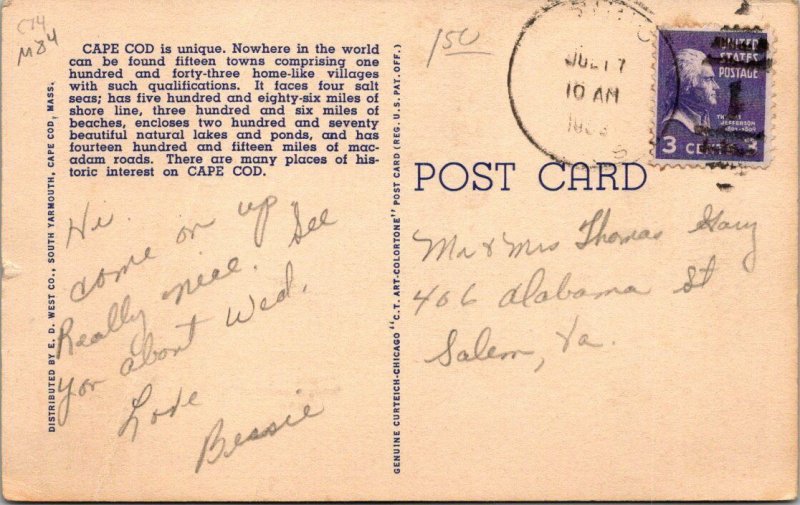 C74
M84
150
CAPE COD is unique. Nowhere in the world
can be found fifteen towns comprising one
hundred and forty-three home-like villages
with such qualifications. It faces four salt
seas; has five hundred and eighty-six miles of
shore line, three hundred and six miles of
beaches, encloses two hundred and seventy
beautiful natural lakes and ponds, and has
fourteen hundred and fifteen miles of mac-
adam roads. There are many places of his-
toric interest on CAPE COD.
Hi.
Come on up
Really nice. See
you about Wed.
Love
Bessie
DISTRIBUTED BY E. D. WEST CO., SOUTH YARMOUTH, CAPE COD, MASS.
GENUINE CURTEICH-CHICAGO "C.T. ART-COLORTONE" POST CARD (REG. U.S. PAT. OFF.)
POST CARD
JUL 17
10 AM
UNITED
STATES
POSTAGE
THOMAS
JEFFERSON
3 CENTS 3
Mr & Mrs Thomas Gary
406 Alabama St
Salem, Va.